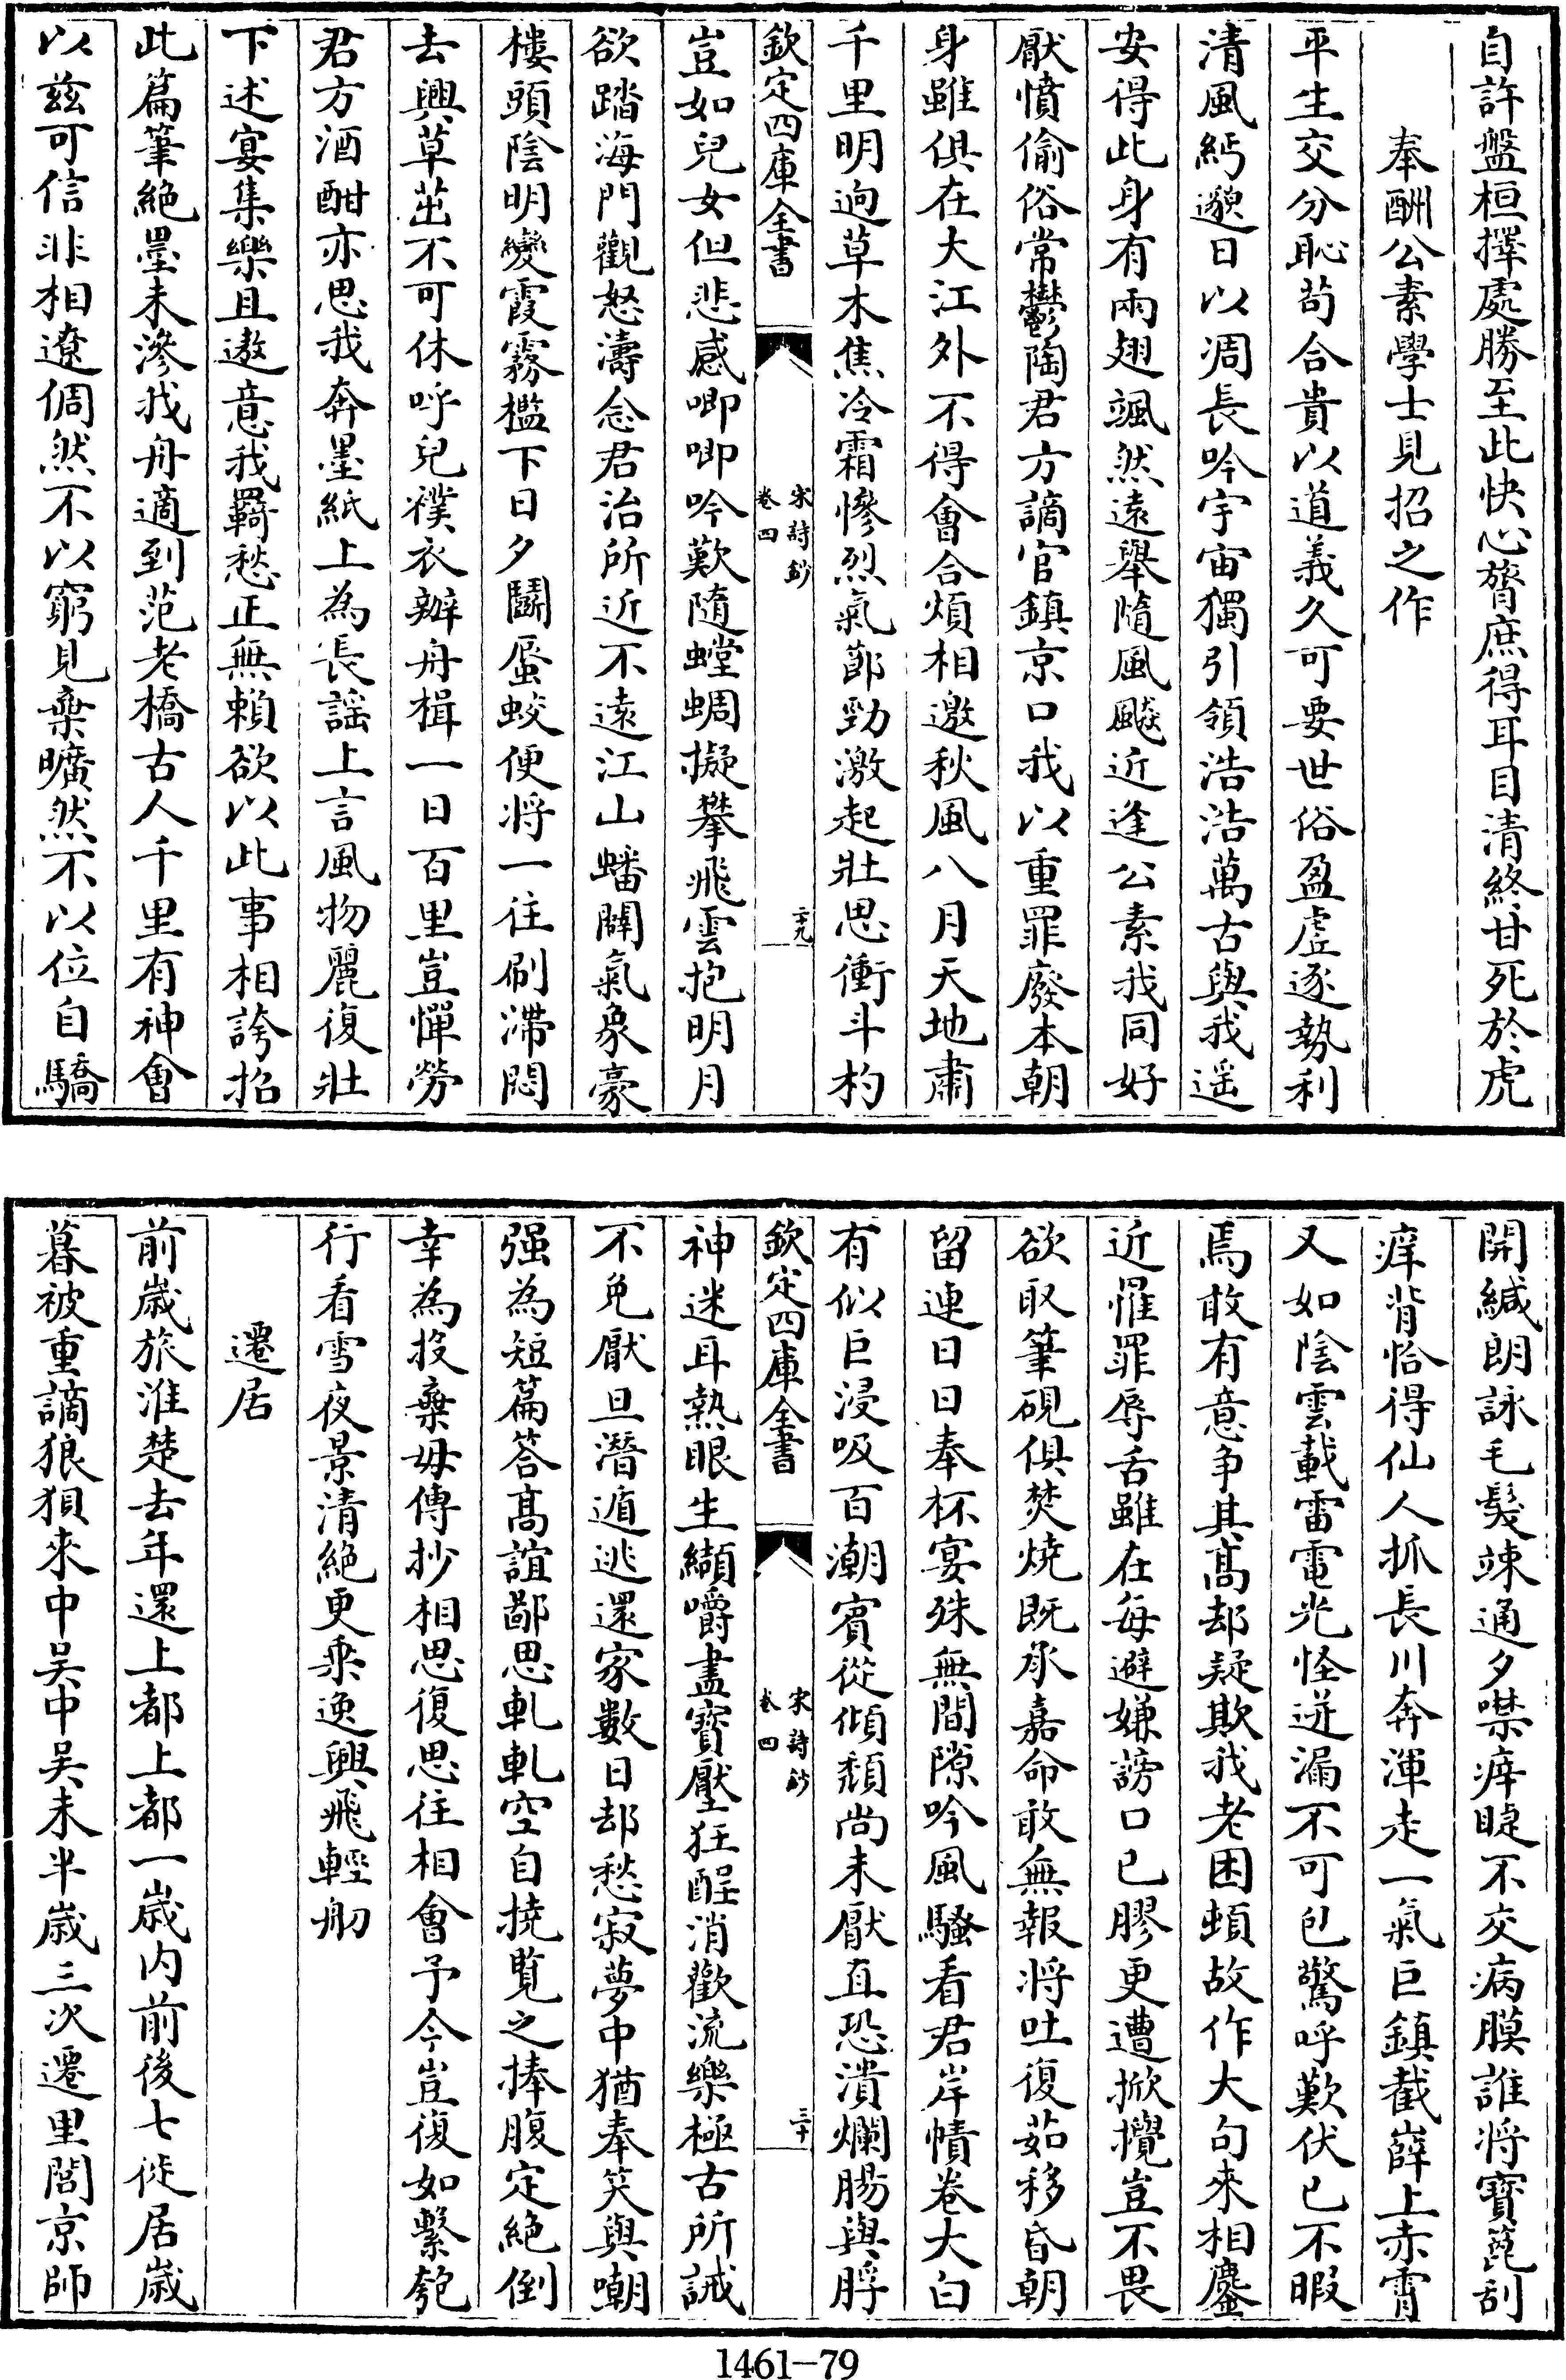 自許盤桓擇處勝至此快心膂庶得耳目清終甘死於虎
奉酬公素學士見招之作
平生交分恥苟合貴以道義久可要世俗盈虚逐勢利
清風緬邈日以凋長吟宇宙獨引領浩浩萬古與我遥
安得此身有兩翅颯然遠舉隨風飈近逢公素我同好
厭憤偷俗常鬱陶君方謫官鎮京口我以重罪廢本朝
身雖俱在大江外不得會合煩相邀秋風八月天地肅
千里明逈草木焦冷霜慘烈氣節勁激起壯思衝斗杓
欽定四庫全書
宋詩鈔
卷四
二十九
豈如兒女但悲感唧唧吟歎隨螳蜩擬攀飛雲抱明月
欲踏海門觀怒濤念君治所近不遠江山蟠闢氣象豪
樓頭陰明變霞霧檻下日夕鬬蜃蛟便將一往刷滯悶
去興草茁不可休呼兒襆衣辦舟楫一日百里豈憚勞
君方酒酣亦思我奔墨紙上為長謡上言風物麗復壯
下述宴集樂且遨意我羇愁正無賴欲以此事相誇招
此篇筆絶墨未滲我舟適到范老橋古人千里有神會
以兹可信非相遼倜然不以窮見棄曠然不以位自驕
開緘朗詠毛髮竦通夕噤痒睫不交病膜誰將寳篦刮
痒背恰得仙人抓長川奔渾走一氣巨鎮截嶭上赤霄
又如陰雲載雷電光怪迸漏不可包驚呼歎伏已不暇
焉敢有意爭其髙却疑欺我老困頓故作大句來相鏖
近罹罪辱舌雖在每避嫌謗口已膠更遭掀攪豈不畏
欲取筆硯俱焚燒既承嘉命敢無報將吐復茹移昏朝
留連日日奉杯宴殊無間隙吟風騷看君岸幘卷大白
有似巨浸吸百潮賓從傾頹尚未厭直恐潰爛腸與脬
欽定四庫全書
宋詩鈔
卷四
三十
神迷耳熱眼生纈嚼盡寳壓狂酲消歡流樂極古所誡
不免厭旦潛遁逃還家數日却愁寂夢中猶奉笑與嘲
强為短篇答髙誼鄙思軋軋空自撓覽之捧腹定絶倒
幸為投棄毋傳抄相思復思往相會予今豈復如繫匏
行看雪夜景清絶更乘逸興飛輕舠
遷居
前歲旅淮楚去年還上都上都一歲内前後七徙居歲
暮被重謫狼狽來中吴中吴未半歲三次遷里閭京師
1461-79